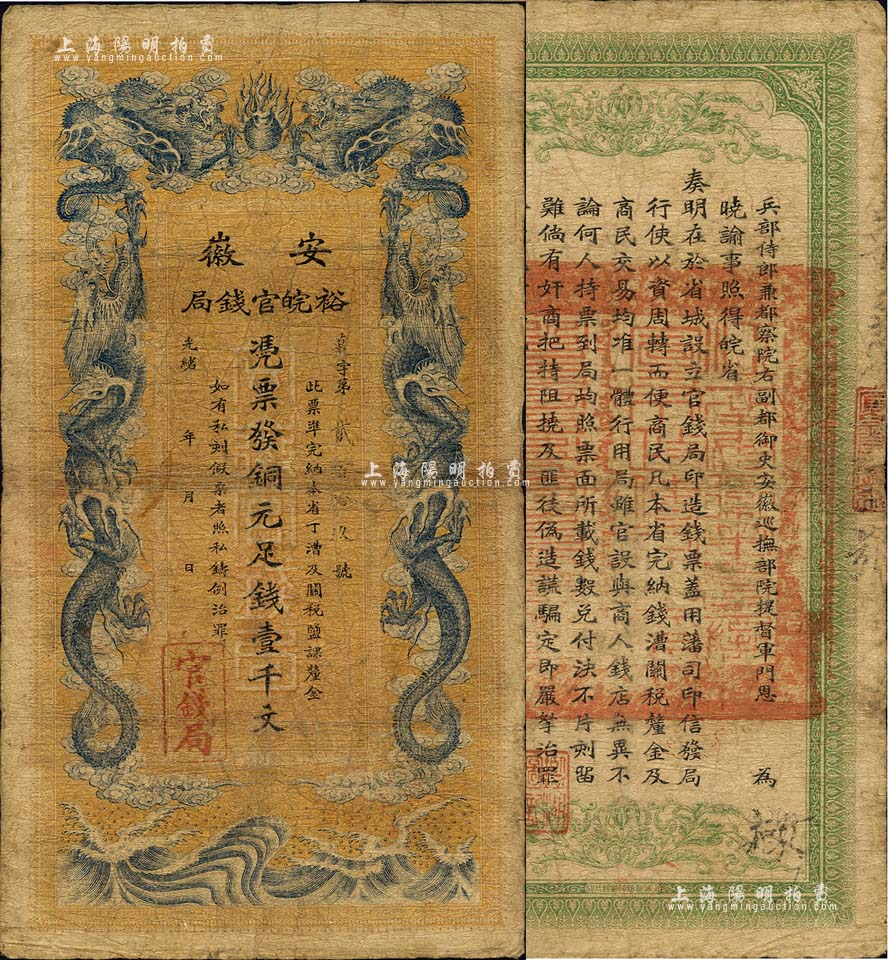 上海陽明拍賣
www.yangmingauction.com
安徽
裕皖官錢局
字第 貳 玖號
此票準完納本省丁漕及關稅鹽課釐金
憑票發銅元足錢壹千文
如有私刻假票者照私鑄倒治罪
光緒 年 月 日
官錢局
上海陽明拍賣
www.yangmingauction.com
兵部侍郎兼都察院右副都御史安徽巡撫部院提督軍門恩 為
曉諭事照得皖省
奏明在於省城設立官錢局印造錢票蓋用藩司印信發局
行使以資周轉而便商民凡本省完納錢漕關稅釐金及
商民交易均准一體行用局雖官設與商人錢店無異不
論何人持票到局均照票面所載錢數兌付決不片刻留
難倘有奸商把持阻撓及匪徒偽造謊騙定即嚴拏治罪
上海陽明拍賣
www.yangmingauction.com